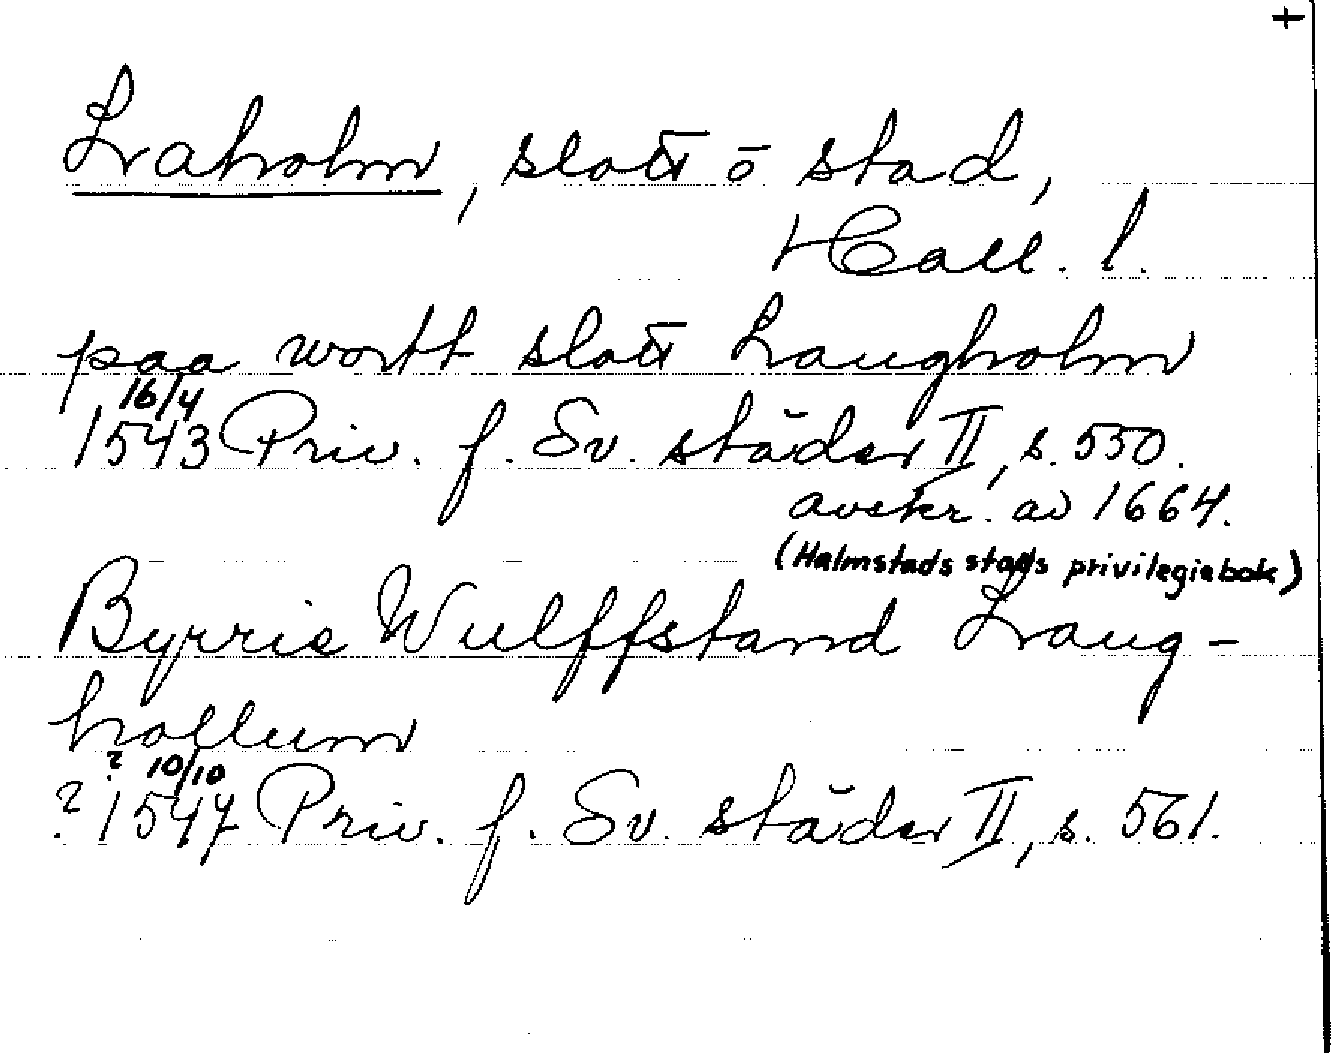 +
Laholm, slott o stad,
Hall. l.
paa wortt slott Laugholm
16/4
1543 Priv. f. Sv. städer II, s. 550.
avskr. av 1664.
(Halmstads stads privilegiebok)
Byrris Wulffstand Laug-
hollum
? 10/10
? 1547 Priv. f. Sv. städer II, s. 561.